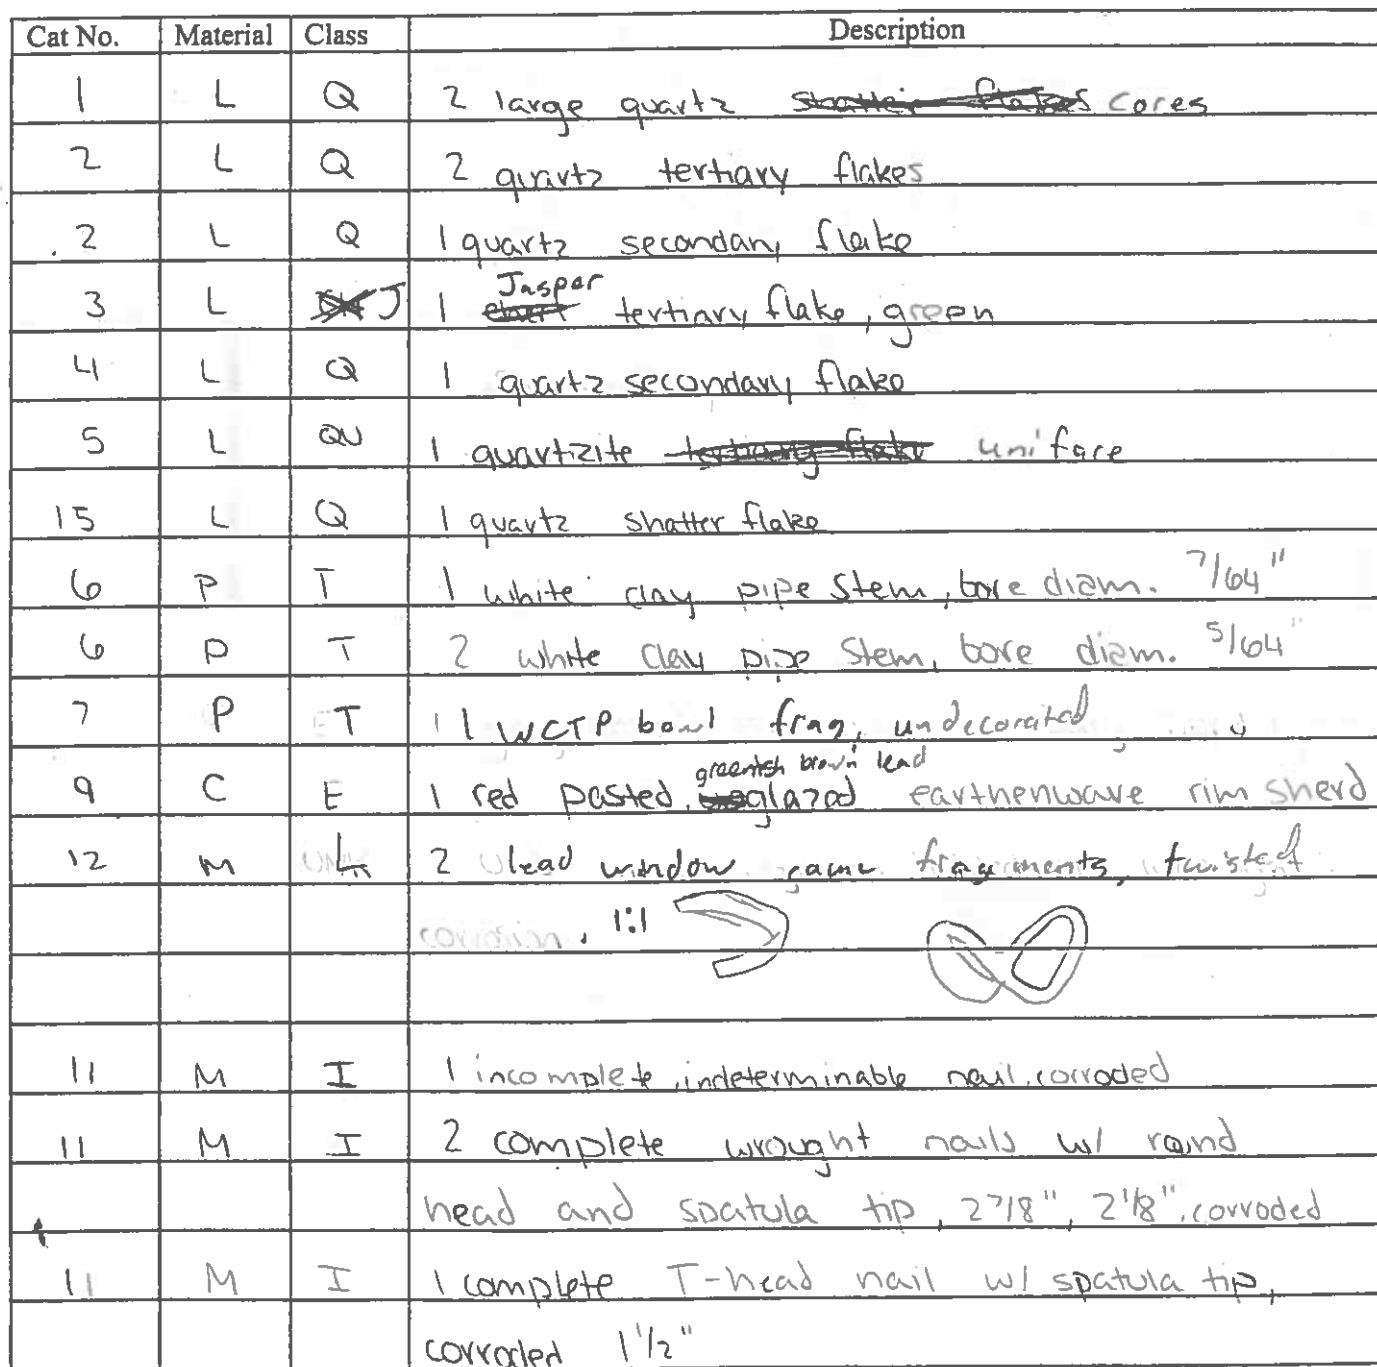 Cat No. Material Class Description
1 L Q 2 large quartz cores
2 L Q 2 quartz tertiary flakes
2 L Q 1 quartz secondary flake
Jasper
3 L J 1 tertiary flake, green
4 L Q 1 quartz secondary flake
5 L QU 1 quartizite uniface
15 L Q 1 quartz shatter flake
6 P T 1 white clay pipe stem, bore diam. 7/64"
6 P T 2 white clay pipe stem, bore diam. 5/64"
7 P T 1 WCTP bowl frag, undecorated
greenish brown lead
9 C E 1 red pasted, glazed earthenware rim sherd
12 M L 2 lead window came fragments, twisted
corrosion. 1:1
11 M I 1 incomplete, indeterminable nail, corroded
11 M I 2 complete wrought nails w/ round
head and spatula tip, 2 7/8", 2 1/8", corroded
11 M I 1 complete T-head nail w/ spatula tip,
corroded 1 1/2"